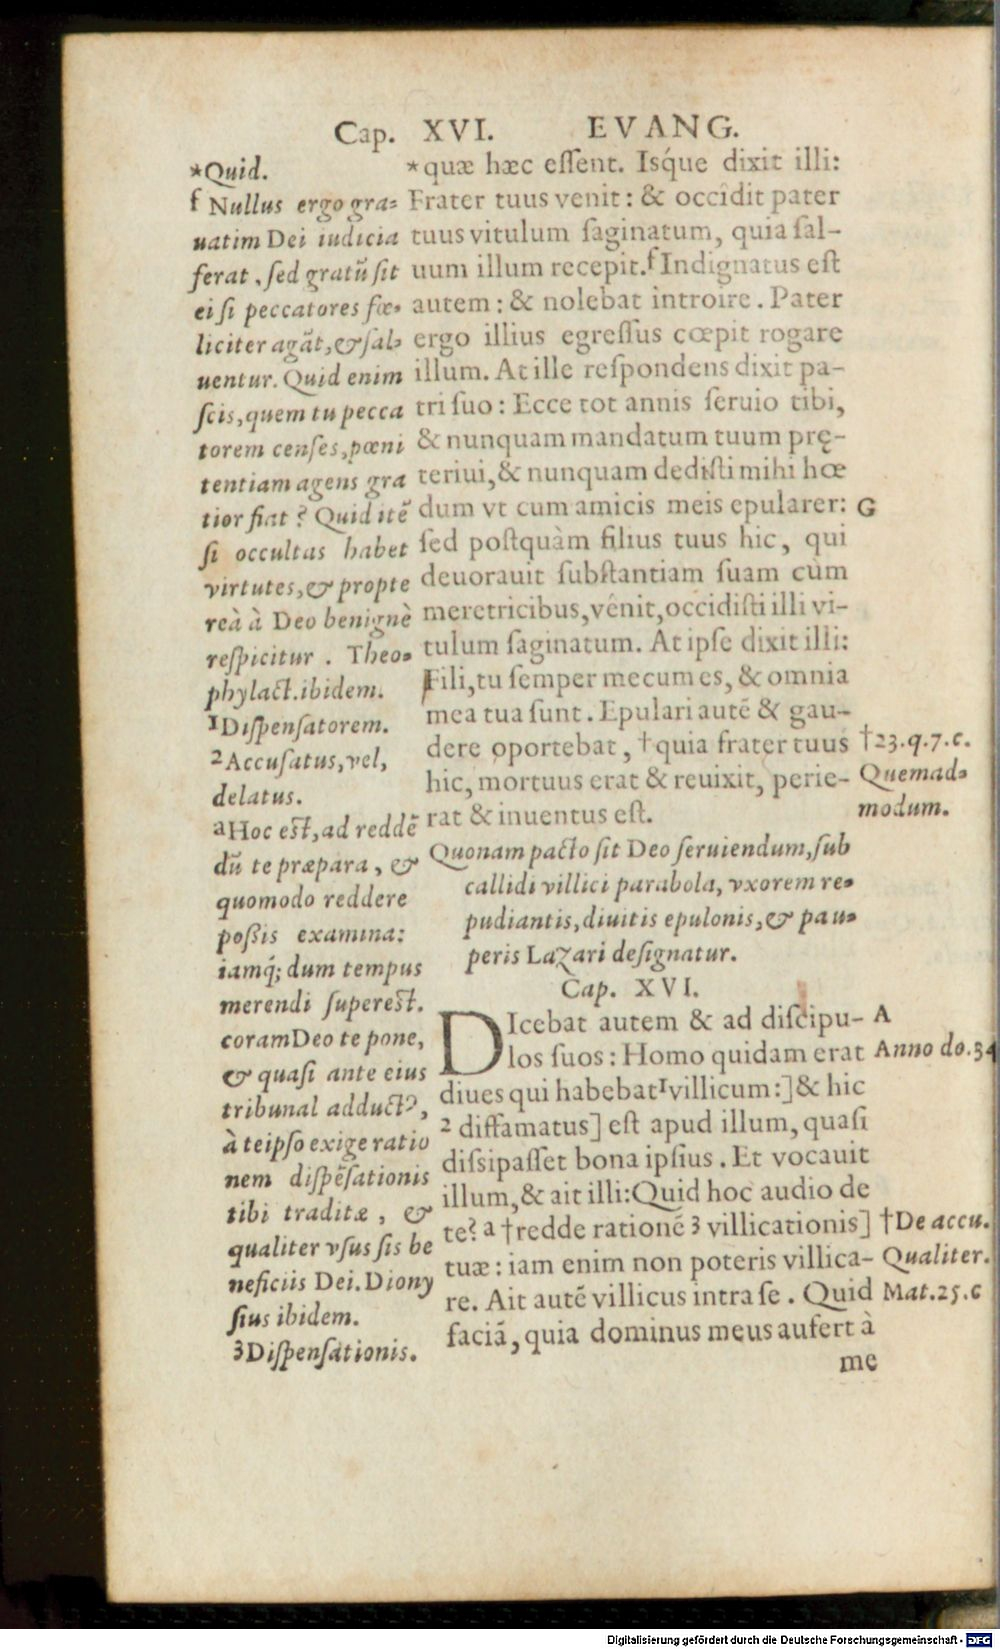 Cap. XVI. EVANG.
*Quid.
f Nullus ergo gra-
uatim Dei iudicia
ferat, sed gratũ sit
ei si peccatores fœ-
liciter agãt, & sal-
uentur. Quid enim
scis, quem tu pecca
torem censes, pœni
tentiam agens gra
tior fiat? Quid itẽ
si occultas habet
virtutes, & propte
reà à Deo benignè
respicitur. Theo-
phylact. ibidem.
1 Dispensatorem.
2 Accusatus, vel,
delatus.
a Hoc est, ad reddẽ
dũ te præpara, &
quomodo reddere
poßis examina:
iamq́; dum tempus
merendi superest.
coram Deo te pone,
& quasi ante eius
tribunal adductꝰ,
à teipso exige ratio
nem dispẽsationis
tibi traditæ, &
qualiter vsus sis be
neficiis Dei. Diony
sius ibidem.
3 Dispensationis.
*quæ hæc essent. Isq́ue dixit illi:
Frater tuus venit: & occîdit pater
tuus vitulum saginatum, quia sal-
uum illum recepit. f Indignatus est
autem: & nolebat introire. Pater
ergo illius egressus cœpit rogare
illum. At ille respondens dixit pa-
tri suo: Ecce tot annis seruio tibi,
& nunquam mandatum tuum prę-
teriui, & nunquam dedisti mihi hœ
dum vt cum amicis meis epularer:
sed postquàm filius tuus hic, qui
deuorauit substantiam suam cùm
meretricibus, vênit, occidisti illi vi-
tulum saginatum. At ipse dixit illi:
Fili, tu semper mecum es, & omnia
mea tua sunt. Epulari autẽ & gau-
dere oportebat, †quia frater tuus
hic, mortuus erat & reuixit, perie-
rat & inuentus est.
Quonam pacto sit Deo seruiendum, sub
callidi villici parabola, vxorem re-
pudiantis, diuitis epulonis, & pau-
peris Lazari designatur.
Cap. XVI.
DIcebat autem & ad discipu-
los suos: Homo quidam erat
diues qui habebat 1 villicum:] & hic
2 diffamatus] est apud illum, quasi
dissipasset bona ipsius. Et vocauit
illum, & ait illi: Quid hoc audio de
te? a †redde rationẽ 3 villicationis]
tuæ: iam enim non poteris villica-
re. Ait autẽ villicus intra se. Quid
faciã, quia dominus meus aufert à
me
G
†23.q.7.c.
Quemad-
modum.
A
Anno do.34
†De accu.
Qualiter.
Mat.25.c
Digitalisierung gefördert durch die Deutsche Forschungsgemeinschaft - DFG